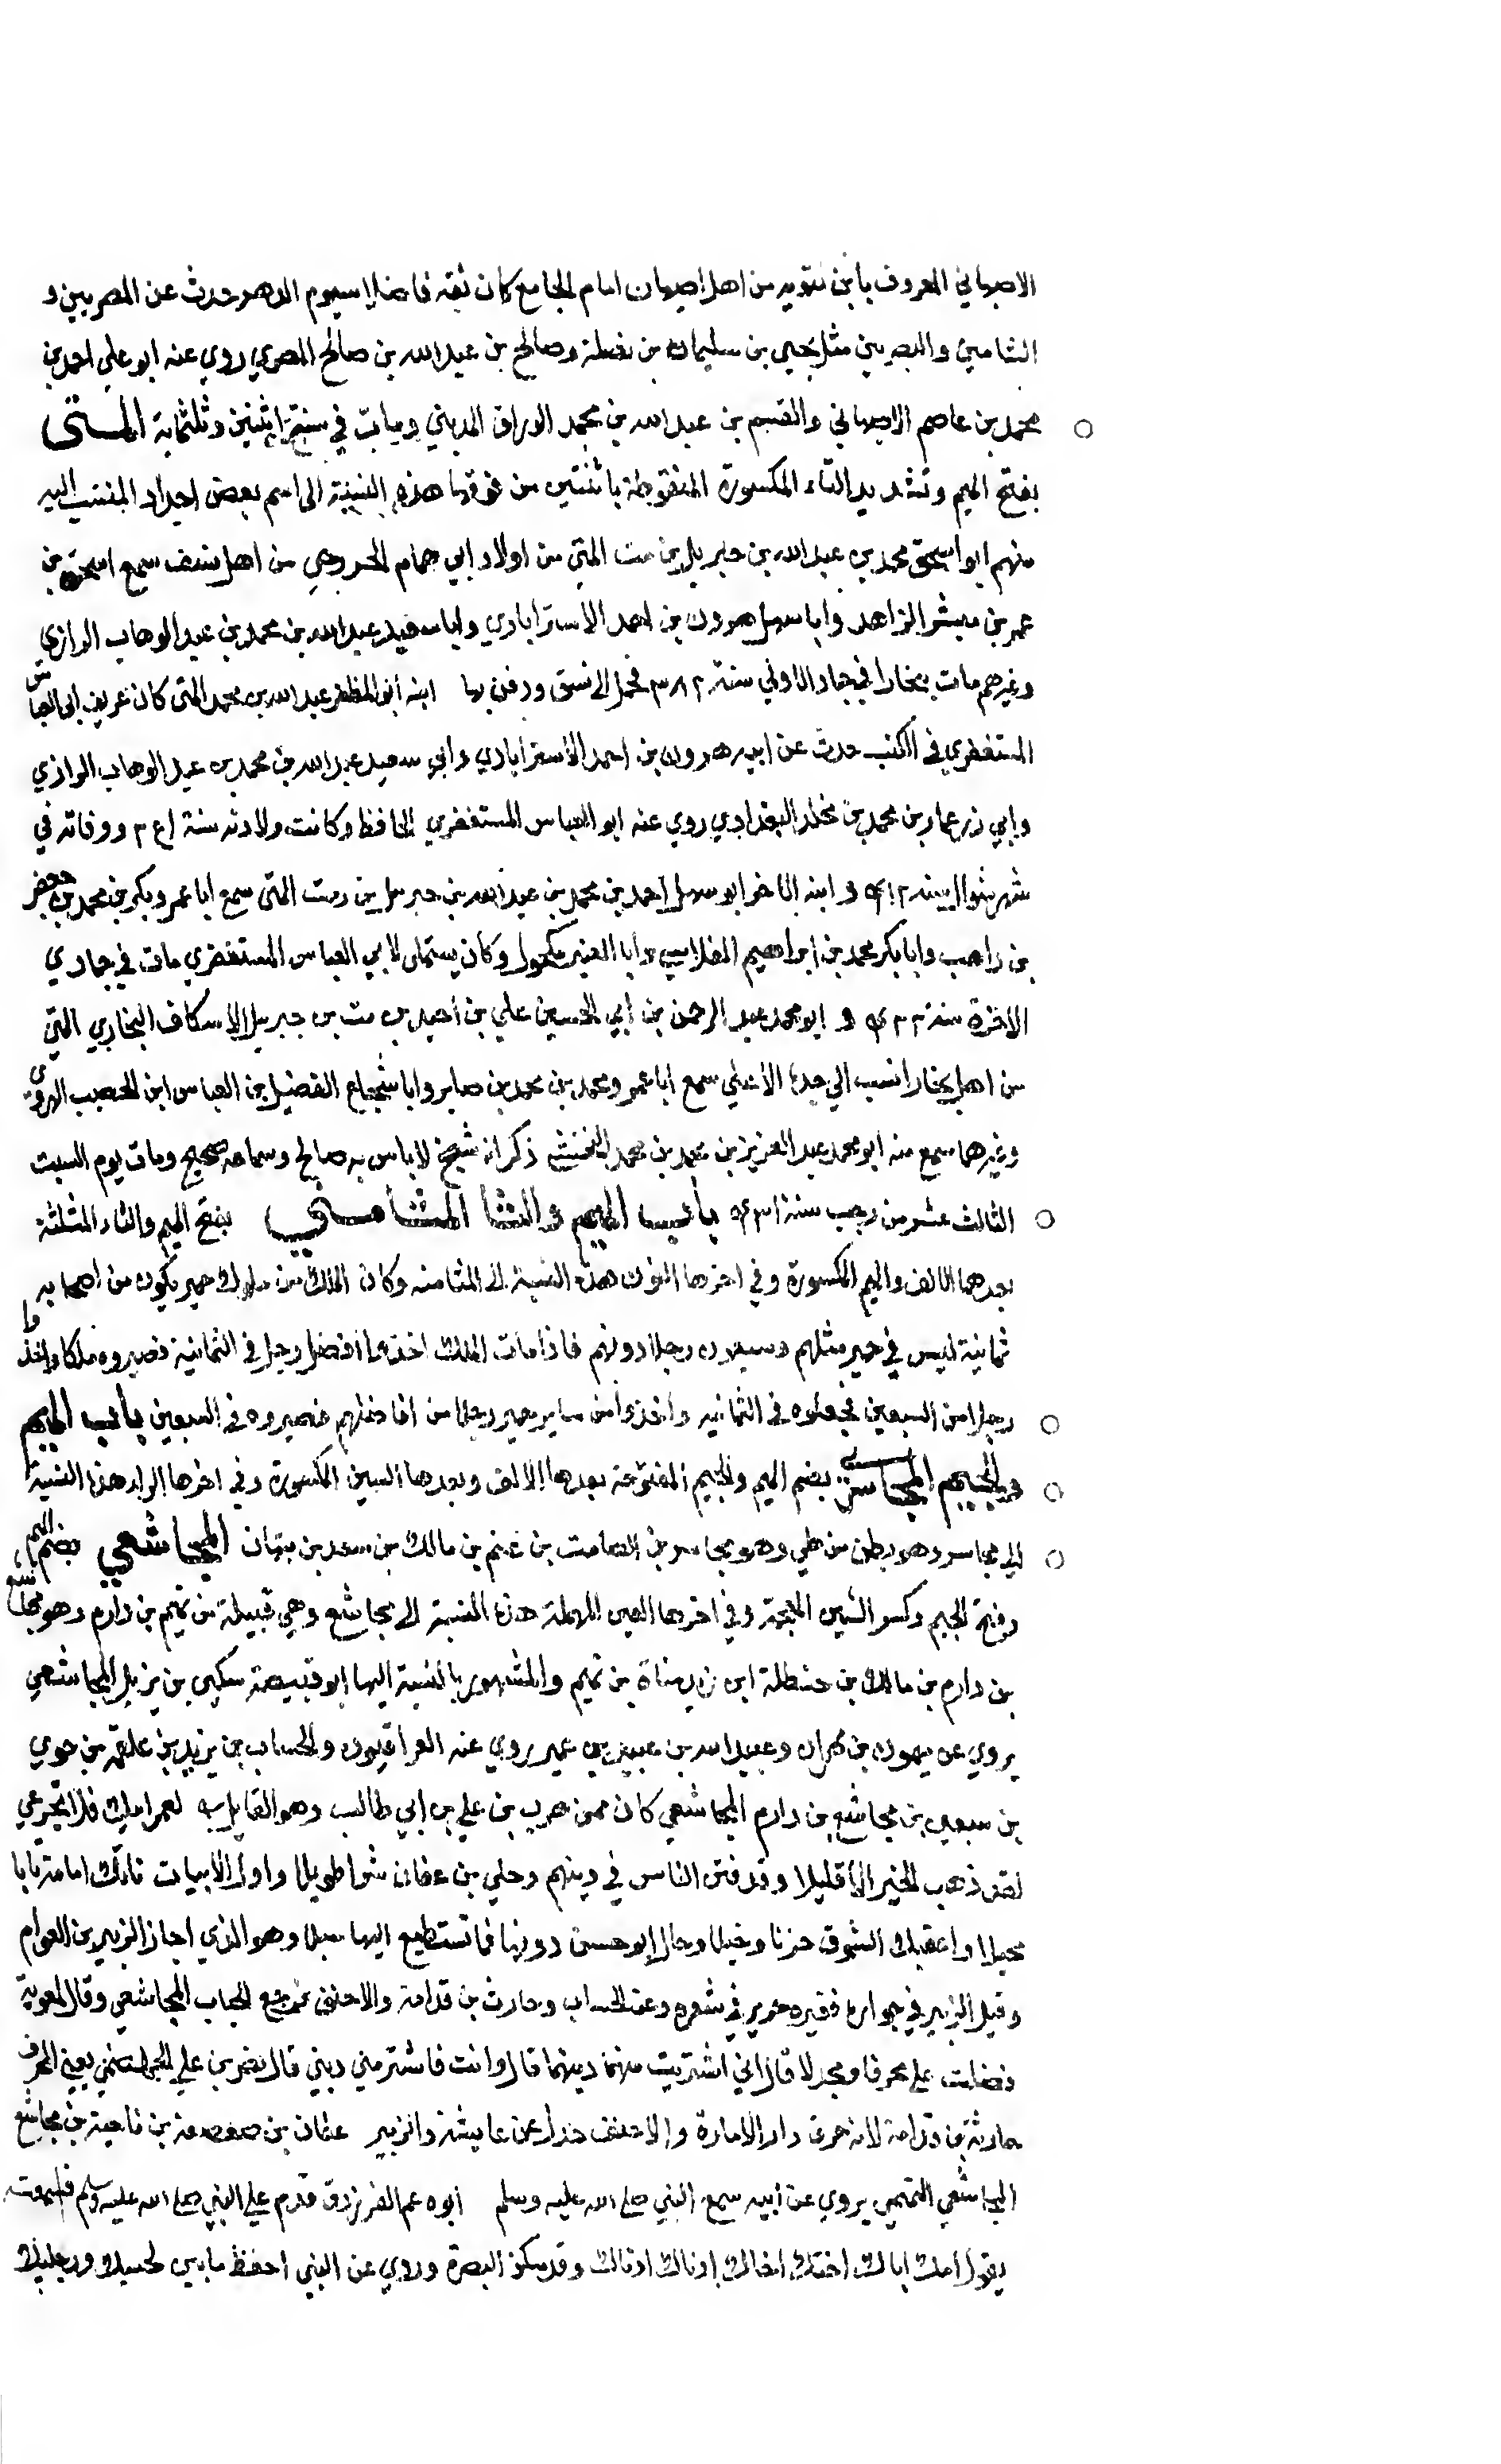 الاصبهاني المعروف بابن متويه من اهل اصبهان امام الجامع كان ثقة فاضلا يصوم الدهر حدث عن المصريين و
الشاميين والبصريين مثل يحيى بن سليمان بن نضلة وصالح بن عبد الله بن صالح المصري روي عنه ابو علي احمد بن
محمد بن عاصم الاصبهاني والقسم بن عبد الله بن محمد الوراق المديني ومات في سنة اثنين وثلثماية المتى
بفتح الميم وتشديد التاء المكسورة المنقوطة باثنتين من فوقها هذه النسبة الى اسم بعض اجداد المنتسب اليه
منهم ابو اسحق محمد بن عبد الله بن جبريل بن مت المتي من اولاد ابي همام من اهل نسف سمع اسحق بن
عمر بن مبشر الزاهد وابا سهل هرون بن احمد الاستراباذي وابا سعيد عبد الله بن محمد بن عبد الوهاب الرازي
وغيرهم مات ببخارا في جماد الاولي سنة ٣٨٢ فحمل الى نسف ودفن بها ابنه ابو المظفر عبد الله بن محمد المتى كان عريف ابي العباس
المستغفري في الكتب حدث عن ابيه هرون بن احمد الاستراباذي وابي سعيد عبد الله بن محمد بن عبد الوهاب الرازي
وابي ذر عمار بن محمد بن مخلد البغدادي روي عنه ابو العباس المستغفري الحافظ وكانت ولادته سنة ووفاته في
شهر شوال سنة وابنه الاخر ابو سهل احمد بن محمد بن عبد الله بن جبريل بن مت المتى سمع ابا عمرو بكر بن محمد بن جعفر
بن راهب وابا بكر محمد بن ابراهيم القلانسي وابا المعين مكحول وكان يستملى لابي العباس المستغفري مات في جمادي
الاخرة سنة و ابو محمد عبد الرحمن بن ابي الحسين علي بن احيد بن مت بن جبريل الاسكاف البخاري المتي
من اهل بخارا نسب الي جده الاعلي سمع ابا عمرو محمد بن محمد بن صابر وابا شجاع الفضيل بن العباس ابن الخصيب الهروي
وغيرهما سمع منه ابو محمد عبد العزيز بن محمد بن محمد النخشبي ذكر انه شيخ لا باس به صالح وسماعه صحيح ومات يوم السبت
الثالث عشر من رجب سنة باب الميم والثا المثامني بفتح الميم والثاء المثلثة
بعدهما الالف والميم المكسورة وفي اخرها النون هذه النسبة الى المثامنه وكان الملك من ملوك حمير يكون من اصحابه
ثمانية ليس في حمير مثلهم وسبعون رجلا دونهم فاذا مات الملك اخذوا افضل رجل في الثمانية فصيروه ملكا واخذوا
رجلا من السبعين فجعلوه في الثمانيه واخذوا من ساير حمير رجلا من افاضلهم فصيروه في السبعين باب الميم
والجيم المجاسري بضم الميم والجيم المفتوحة بعدها الالف وبعدها السين المكسورة وفي اخرها الراء هذه النسبة
الى مجاسر وهو بطن من طي وهو مجاسر بن الصامت بن غنم بن مالك بن سعد بن نبهان المجاشعي بضم الميم
وفتح الجيم وكسر الشين المعجمة وفي اخرها العين المهملة هذه النسبة الى مجاشع وهي قبيلة من تميم بن دارم وهو مجاشع
بن دارم بن مالك بن حنظلة ابن زيد مناة بن تميم والمشهور بالنسبة اليها ابو قبيصة سكين بن يزيد المجاشعي
يروي عن ميمون بن مهران وعبيد الله بن عبيد بن عمير يروي عنه العراقيون والحتات بن يزيد بن علقمة بن حوي
بن سبعين بن مجاشع بن دارم المجاشعي كان ممن هرب من علي بن ابي طالب وهو القايل لعمر ابيك فلا تجزعي
لقد ذهب الخير الا قليلا وقد فتن الناس في دينهم وخلي بن عفان شرا طويلا واول الابيات نأتك امامة نايا
محيلا واعقبك الشوق حزنا دخيلا وحال ابو حسن دونها فما تستطيع اليها سبيلا وهو الذي اجاز الزبير بن العوام
وقيل الزبير في جواره فعيره جرير في شعره وعن الحتات وحارث بن قدامة والاحنف ثم رجع الحتات المجاشعي وقال لمعوية
فضلت علي محرقا ومخذلا قال اني اشتريت منهما دينهما قال وانت فاشتر مني ديني قال نصر بن علي الجهضمي يعني المحرق
حارثة بن قدامة لانه حرق دار الامارة والاحنف خذل عن عايشة والزبير عقال بن صعصعة بن ناجية بن مجاشع
المجاشعي التميمي يروي عن ابيه سمع النبي صلى الله عليه وسلم ابوه عم الفرزدق قدم علي النبي صلى الله عليه وسلم فسمعته
يقول امك اباك اختك اخاك ادناك ادناك وقد سكن البصرة وروي عن النبي احفظ ما بين لحييك ورجليك